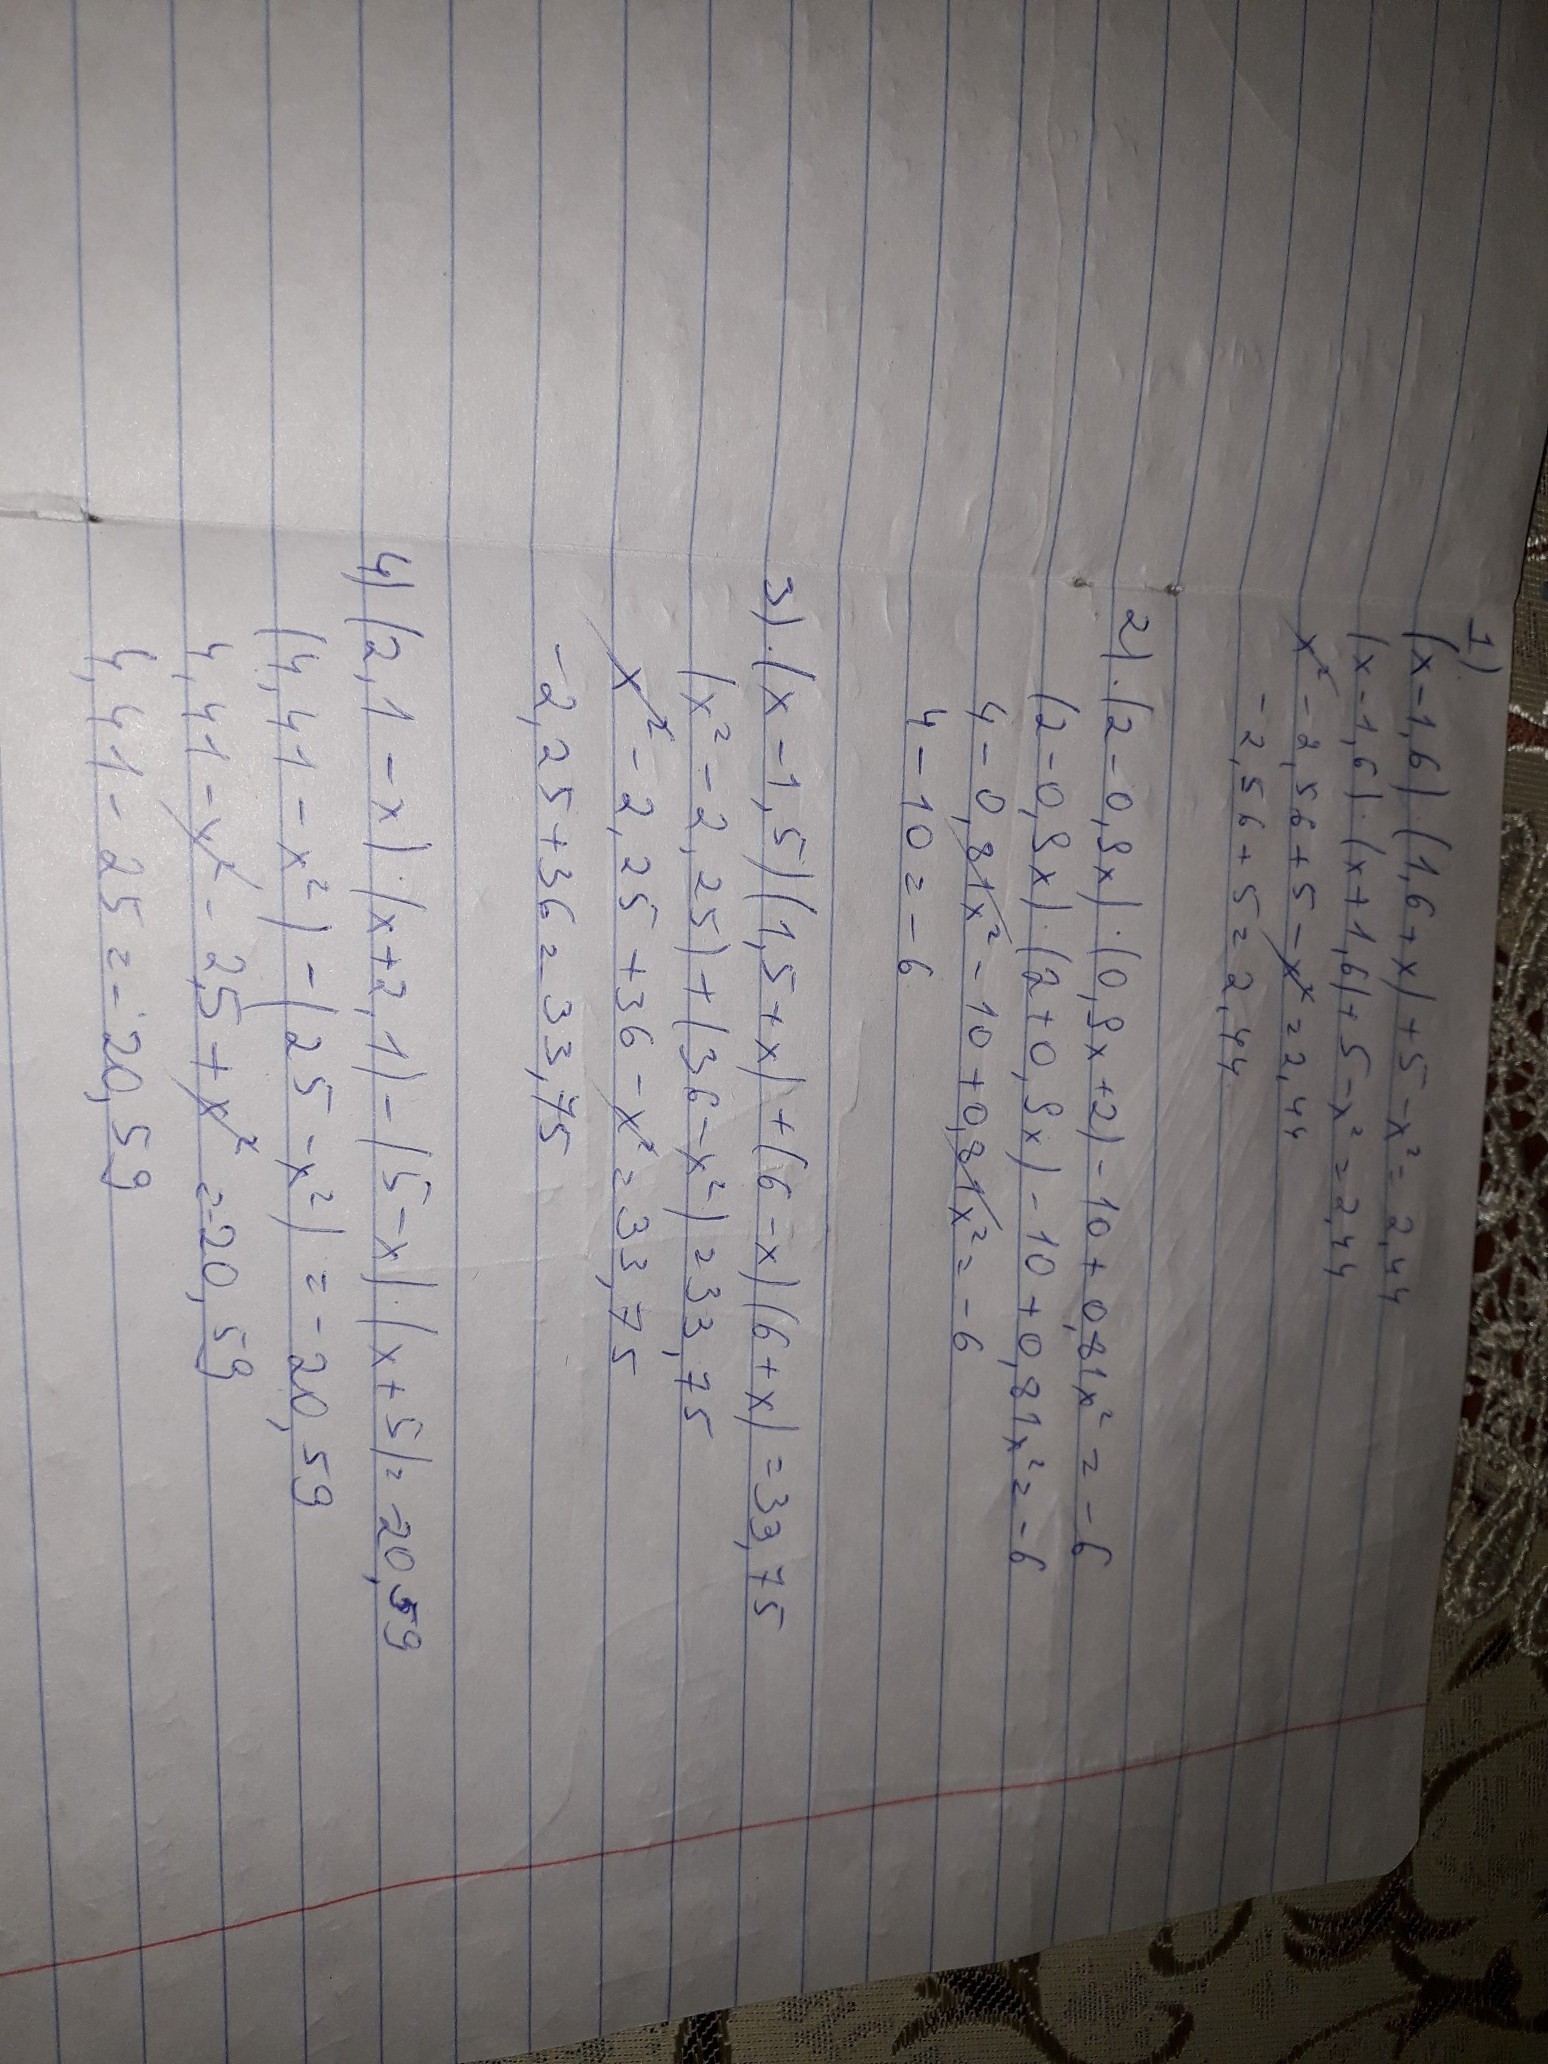 1).
(x-1,6)·(1,6+x)+5-x²=2,44
(x-1,6)·(x+1,6)+5-x²=2,44
x²-2,56+5-x²=2,44
-2,56+5=2,44
2).(2-0,9x)·(0,9x+2)-10+0,81x²=-6
(2-0,9x)·(2+0,9x)-10+0,81x²=-6
4-0,81x²-10+0,81x²=-6
4-10=-6
3).(x-1,5)(1,5+x)+(6-x)(6+x)=33,75
(x²-2,25)+(36-x²)=33,75
x²-2,25+36-x²=33,75
-2,25+36=33,75
4)(2,1-x)·(x+2,1)-(5-x)·(x+5)=-20,59
(4,41-x²)-(25-x²)=-20,59
4,41-x²-25+x²=-20,59
4,41-25=-20,59